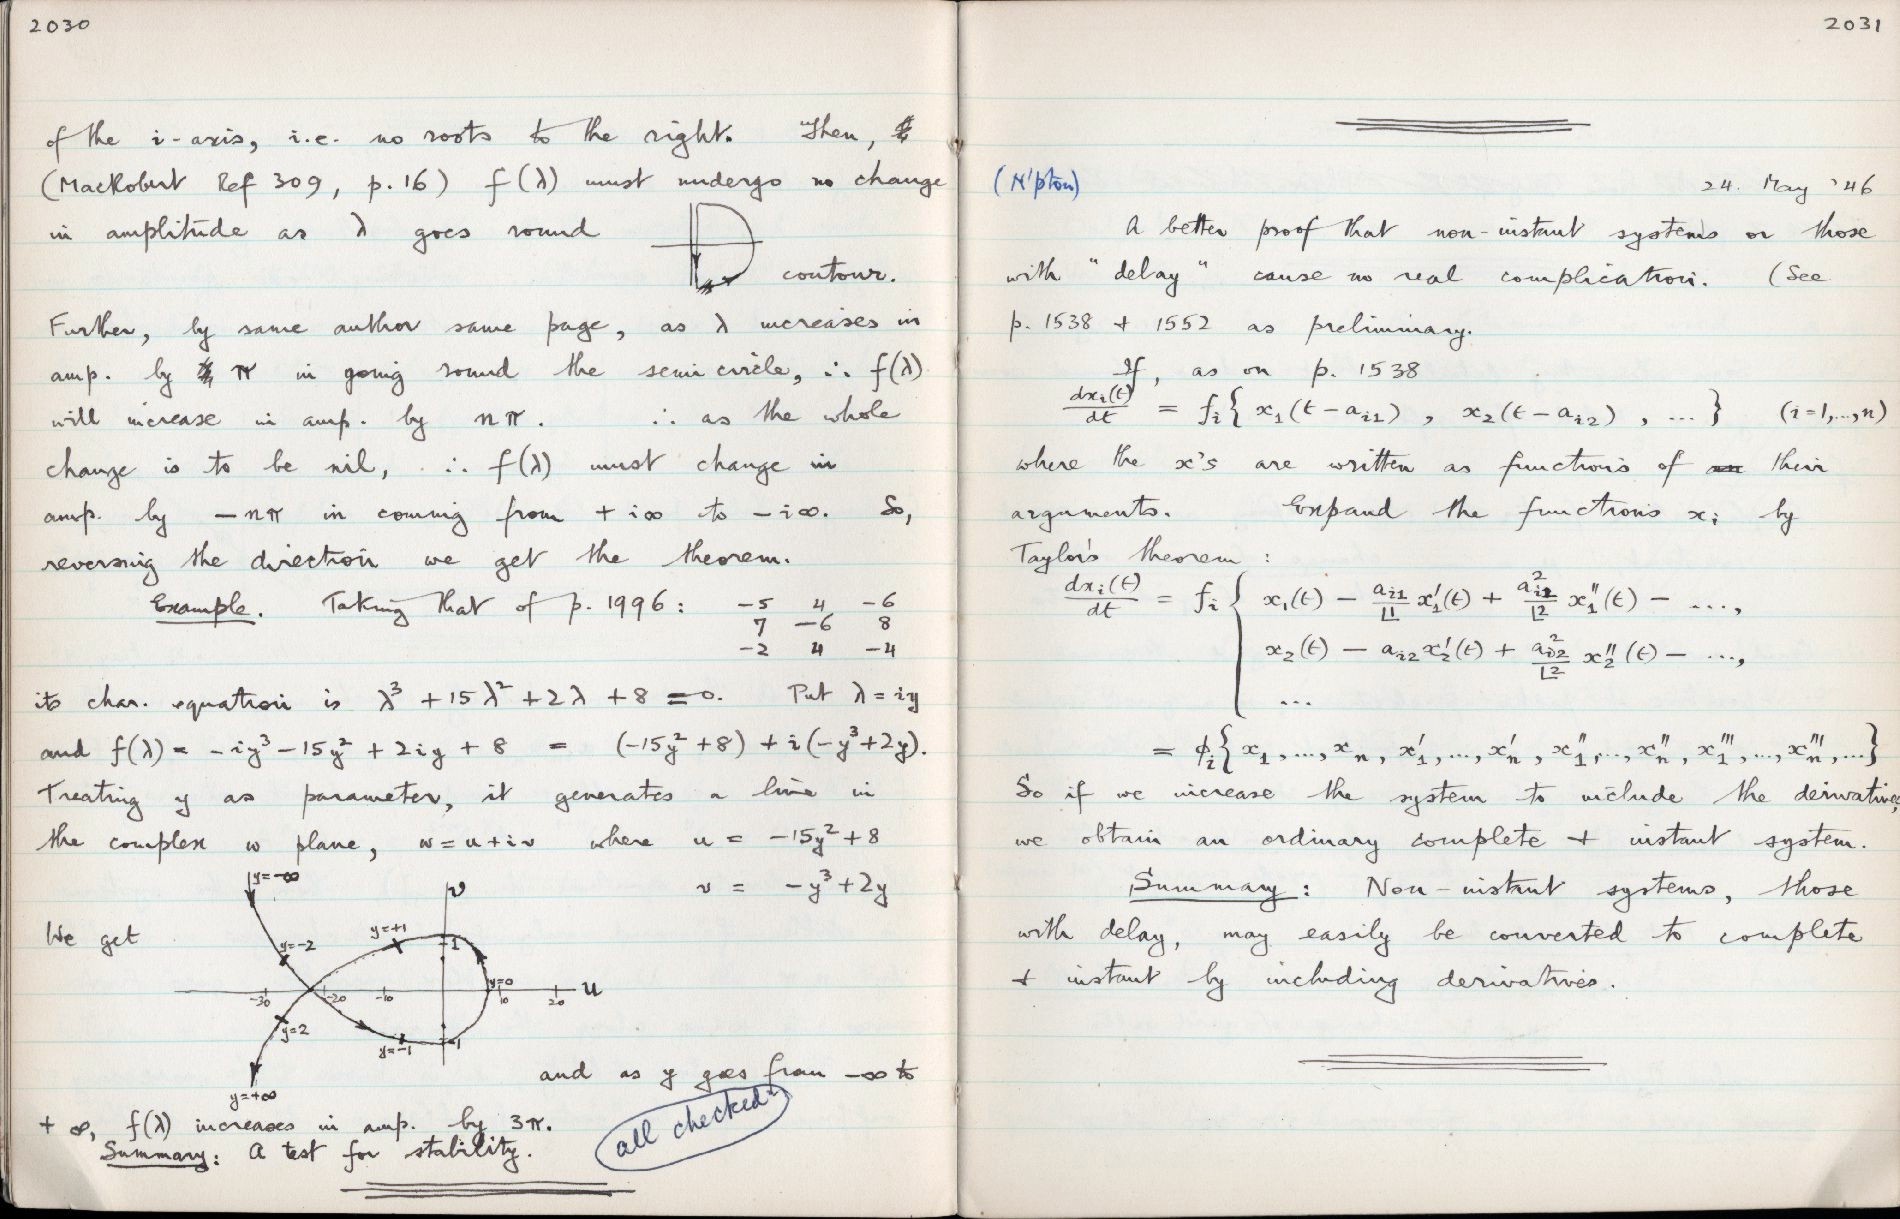 2030
of the i-axis, i.e. no roots to the right. Then,
(MacRobert Ref 309, p. 16) f(λ) must undergo no change
in amplitude as λ goes round
contour.
Further, by same author same page, as λ increases in
amp. by π in going round the semicircle, ∴ f(λ)
will increase in amp. by nπ. ∴ as the whole
change is to be nil, ∴ f(λ) must change in
amp. by −nπ in coming from +i∞ to −i∞. So,
reversing the direction we get the theorem.
Example. Taking that of p. 1996:
-5 4 -6
7 -6 8
-2 4 -4
its char. equation is λ³ + 15λ² + 2λ + 8 = 0. Put λ = iy
and f(λ) = −iy³ − 15y² + 2iy + 8 = (−15y² + 8) + i(−y³ + 2y).
Treating y as parameter, it generates a line in
the complex w plane, w = u + iv where u = −15y² + 8
v = −y³ + 2y
We get
y=-∞
v
y=+1
1
y=-2
y=0
-30 -20 -10 10 20 u
y=2
y=-1
-1
y=+∞
and as y goes from −∞ to
+∞, f(λ) increases in amp. by 3π.
Summary: A test for stability.
all checked
2031
(N'pton)
24. May '46
A better proof that non-instant systems or those
with "delay" cause no real complication. (See
p. 1538 + 1552 as preliminary.
If, as on p. 1538
dxᵢ(t)/dt = fᵢ{x₁(t − aᵢ₁), x₂(t − aᵢ₂), ...} (i=1,...,n)
where the x's are written as functions of their
arguments. Expand the functions xᵢ by
Taylor's theorem:
dxᵢ(t)/dt = fᵢ{ x₁(t) − aᵢ₁/∟1 x₁′(t) + aᵢ₁²/∟2 x₁″(t) − ...,
x₂(t) − aᵢ₂x₂′(t) + aᵢ₂²/∟2 x₂″(t) − ...,
...
= ϕᵢ{x₁, ..., xₙ, x₁′, ..., xₙ′, x₁″, ..., xₙ″, x₁‴, ..., xₙ‴, ...}
So if we increase the system to include the derivatives,
we obtain an ordinary complete + instant system.
Summary: Non-instant systems, those
with delay, may easily be converted to complete
+ instant by including derivatives.